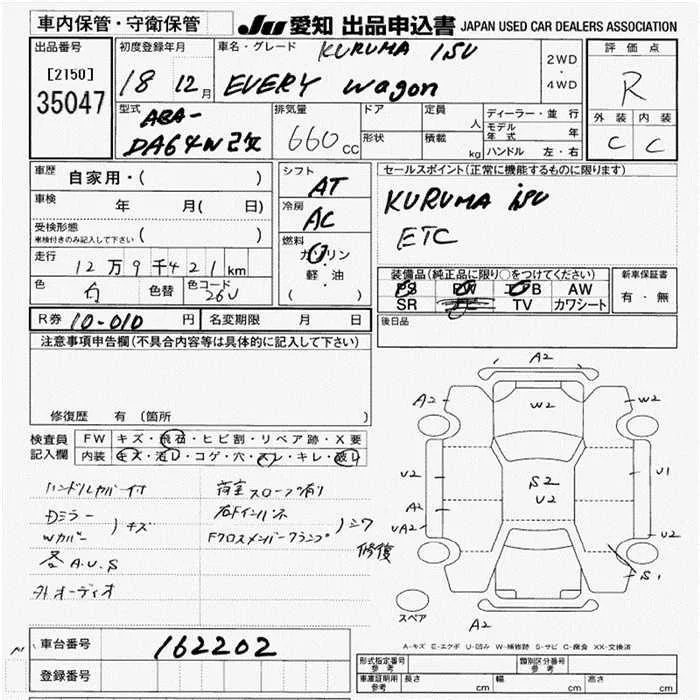 車内保管・守衛保管 JU 愛知 出品申込書 JAPAN USED CAR DEALERS ASSOCIATION
出品番号
[2150]
35047
初度登録年月
18 12月
車名・グレード KURUMA ISU
EVERY Wagon
2WD
・
4WD
評価点
R
外装 内装
C C
型式 ABA-
DA64W 2型
排気量
660 cc
ドア
形状
定員 人
積載 kg
ディーラー・並行
モデル年式 年
ハンドル 左・右
車歴 自家用・( )
車検 年 月( 日)
受検形態
車検付きのみ記入して下さい ( )
走行
12万9千421km
色 白 色替 色コード 26U
シフト
AT
冷房
AC
燃料
ガソリン
軽・油
( )
セールスポイント(正常に機能するものに限ります)
KURUMA isu
ETC
装備品(純正品に限り○をつけてください)
PS PW エアB AW
SR TV カワシート
新車保証書
有・無
後日品
R券 10-010 円 名変期限 月 日
注意事項申告欄(不具合内容等は具体的に記入して下さい)
修復歴 有(箇所
検査員
記入欄
FW キズ・飛石・ヒビ割・リペア跡・X要
内装 キズ・汚レ・コゲ・穴・スレ・キレ・破レ
ハンドルカバー付
Dミラー
Wカバー
)キズ
各A.U.S
外オーディオ
荷室スロープ有り
右Fインパネ
Fクロスメンバークランプ
)シワ
修復
A2
A2
W2
W2
U2
S2
U2
U1
A2
UA2
U2
S1
A2
スペア
A-キズ E-エクボ U-凹み W-補修跡 S-サビ C-腐食 XX-交換済
車台番号 162202
登録番号
形式指定番号
参考
類別区分番号
参考
車庫証明用
参考
長さ cm 幅 cm 高さ cm